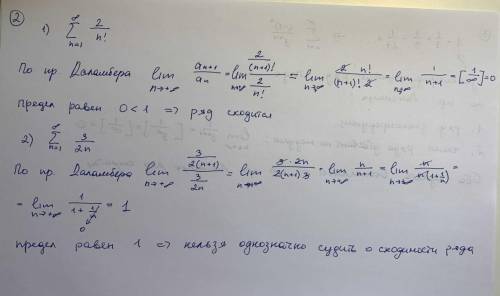 ②
1) ∞ ∑ n=1 2/n!
По пр. Даламбера lim n→+∞ a_{n+1}/a_n = lim n→∞ (2/(n+1)!)/(2/n!) = lim n→∞ 2 n!/((n+1)! 2) = lim n→∞ 1/(n+1) = [1/∞] = 0
предел равен 0 < 1 => ряд сходится
2) ∞ ∑ n=1 3/2n
По пр. Даламбера lim n→+∞ (3/2(n+1))/(3/2n) = lim n→∞ 3·2n/(2(n+1)3) = lim n→∞ n/(n+1) = lim n→∞ n/(n(1+1/n)) =
= lim n→+∞ 1/(1+1/n) = 1
0
предел равен 1 => нельзя однозначно судить о сходимости ряда